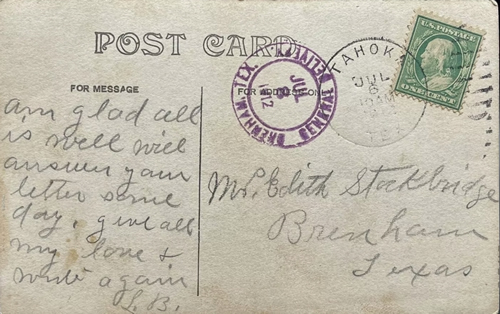 POST CARD
FOR MESSAGE
FOR ADDRESS ONLY
am glad all
is well will
answer your
letter some
day, give all
my love &
write again
L.B.
BRENHAM, TEX.
JUL
8
1912
GENERAL DELIVERY
KAHOKA
JUL
6
10 AM
U.S. POSTAGE
ONE CENT
Edith Stockbridge
Brenham
Texas